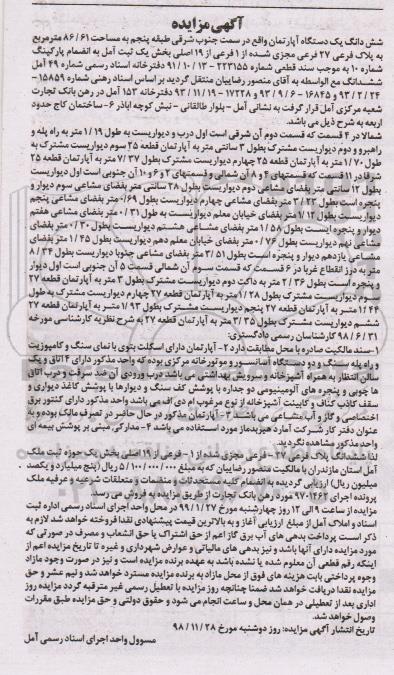 آگهی مزایده
شش دانگ یک دستگاه آپارتمان واقع در سمت جنوب شرقی طبقه پنجم به مساحت ۸۶/۶۱ مترمربع
به پلاک فرعی ۲۷ فرعی مجزی شده از ۱ فرعی از ۱۹ اصلی بخش یک ثبت آمل به انضمام پارکینگ
شماره ۱۰ به موجب سند قطعی شماره ۲۲۳۱۵۵ - ۹۱/۱۰/۱۳ دفترخانه اسناد رسمی شماره ۴۹ آمل
ششدانگ مع الواسطه به آقای منصور رضاییان منتقل گردید بر اساس اسناد رهنی شماره ۱۵۸۵۹-
۹۳/۲/۲۴ و ۱۶۸۴۵ - ۹۳/۹/۶ و ۱۷۲۲۸ - ۹۳/۱۱/۱۹ دفترخانه ۱۵۳ آمل در رهن بانک تجارت
شعبه مرکزی آمل قرار گرفت به نشانی آمل - بلوار طالقانی - نبش کوچه اباذر ۶- ساختمان کاج حدود
اربعه به شرح ذیل می باشد.
شمالا در ۴ قسمت که قسمت دوم آن شرقی است اول درب و دیواریست به طول ۱/۱۹ متر به راه پله و
راهبرو و دوم دیواریست مشترک بطول ۳ سانتی متر به آپارتمان قطعه ۲۵ سوم دیواریست مشترک به
طول ۱/۷۰ متر به آپارتمان قطعه ۲۵ چهارم دیواریست مشترک بطول ۷/۳۷ متر به آپارتمان قطعه ۲۵
شرقا در ۱۱ قسمت که قسمتهای ۴ و ۸ آن شمالی و قسمتهای ۲ و ۶ و ۱۰ آن جنوبی است اول دیواریست
بطول ۱۲ سانتی متر بفضای مشاعی دوم دیواریست بطول ۲۸ سانتی متر بفضای مشاعی سوم دیوار و
پنجره است بطول ۳/۲۳ متر بفضای مشاعی چهارم دیواریست بطول ۰/۶۹ متر بفضای مشاعی پنجم
دیواریست بطول ۱/۱۲ متر بفضای خیابان معلم دیواریست به طول ۰/۳۱ متر بفضای مشاعی هفتم
دیوار و پنجره ایست بطول ۱/۵۸ متر بفضای مشاعی هشتم دیواریست بطول ۰/۳۰ متر بفضای
مشاعی نهم دیواریست بطول ۰/۷۶ متر بفضای خیابان معلم دهم دیواریست بطول ۱/۴۵ متر بفضای
مشاعی یازدهم دیوار و پنجره است بطول ۳/۵۱ متر بفضای مشاعی جنوبا دیواریست بطول ۸/۳۴
متر به درز انقطاع غربا در ۶ قسمت که قسمت سوم آن شمالی قسمت ۵ آن جنوبی است اول دیوار
و پنجره است بطول ۲/۳۶ متر به داکت دوم دیواریست مشترک بطول ۳ متر به آپارتمان قطعه ۲۷
سوم دیواریست مشترک بطول ۱/۲۸ متر به آپارتمان قطعه ۲۷ چهارم دیواریست مشترک به طول
۱/۴۴ متر به آپارتمان قطعه ۲۷ پنجم دیواریست مشترک بطول ۱/۹۳ متر به آپارتمان قطعه ۲۷
ششم دیواریست مشترک بطول ۳/۳۵ متر به آپارتمان قطعه ۲۷ به شرح نظریه کارشناسی مورخه
۹۸/۶/۳۱ کارشناسان رسمی دادگستری:
۱-سند مالکیت صادره با محل مطابقت دارد ۲- آپارتمان دارای اسکلت بتوی با نمای سنگ و کامپوزیت
و راه پله سنگ و دو دستگاه آسانسور و موتورخانه مرکزی بوده که واحد مذکور دارای ۴ اتاق و یک
سالن انتظار به همراه آشپزخانه و سرویش بهداشتی می باشد درب ورودی آن ضد سرقت و درب اتاق
ها چوبی و پنجره های آلومینیومی دو جداره با پوشش کف سنگ و دیوارها با پوشش کاغذ دیواری و
سقف کاذب کناف و کابینت آشپزخانه از نوع مرغوب ام دی اف می باشد واحد مذکور دارای کنتور برق
اختصاصی و گاز و آب مشاعی می باشد. ۳- آپارتمان مذکور در حال حاضر در تصرف مالک بوده و به
عنوان دفتر کار شرکت آمارد هیربدماز مورد استفاده می باشد ۴- مدارکی مبنی بر پوشش بیمه ای
واحد مذکور مشاهده نگردید.
لذا ششدانگ پلاک فرعی ۲۷ - فرعی مجزی شده از ۱- فرعی از ۱۹ اصلی بخش یک حوزه ثبت ملک
آمل استان مازندران با مالکیت منصور رضاییان که به مبلغ ۵/۱۰۰/۰۰۰/۰۰۰ ریال (پنج میلیارد و یکصد
میلیون ریال) ارزیابی گردیده به انضمام کلیه مستحدثات و منضمات و متعلقات شرعیه و عرفیه ملک
پرونده اجرای ۹۷۰۱۴۶۲ مورد رهن بانک تجارت از طریق مزایده به فروش می رسد
مزایده از ساعت ۹ الی ۱۲ روز چهارشنبه مورخ ۹۹/۱/۲۷ در محل واحد اجرای اسناد رسمی اداره ثبت
اسناد و املاک آمل از مبلغ ارزیابی آغاز و به بالاترین قیمت پیشنهادی نقدا فروخته خواهد شد لازم به
ذکر است پرداخت بدهی های آب برق گاز اعم از حق اشتراک یا حق انشعاب و مصرف در صورتی که
مورد مزایده دارای آنها باشد و نیز بدهی های مالیاتی و عوارض شهرداری و غیره تا تاریخ مزایده اعم از
اینکه رقم قطعی آن معلوم شده یا نشده باشد به عهده برنده مزایده است و نیز در صورت وجود مازاد
وجوه پرداختی بابت هزینه های فوق از محل مازاد به برنده مزایده مسترد خواهد شد و نیم عشر و حق
مزایده نقدا دریافت خواهد شد ضمنا چنانچه روز مزایده با تعطیل رسمی غیر مترقبه گردد مزایده روز
اداری بعد از تعطیلی در همان محل و ساعت انجام می شود و حقوق دولتی و حق مزایده طبق مقررات
وصول خواهد شد.
تاریخ انتشار آگهی مزایده: روز دوشنبه مورخ ۹۸/۱۱/۲۸
مسوول واحد اجرای اسناد رسمی آمل